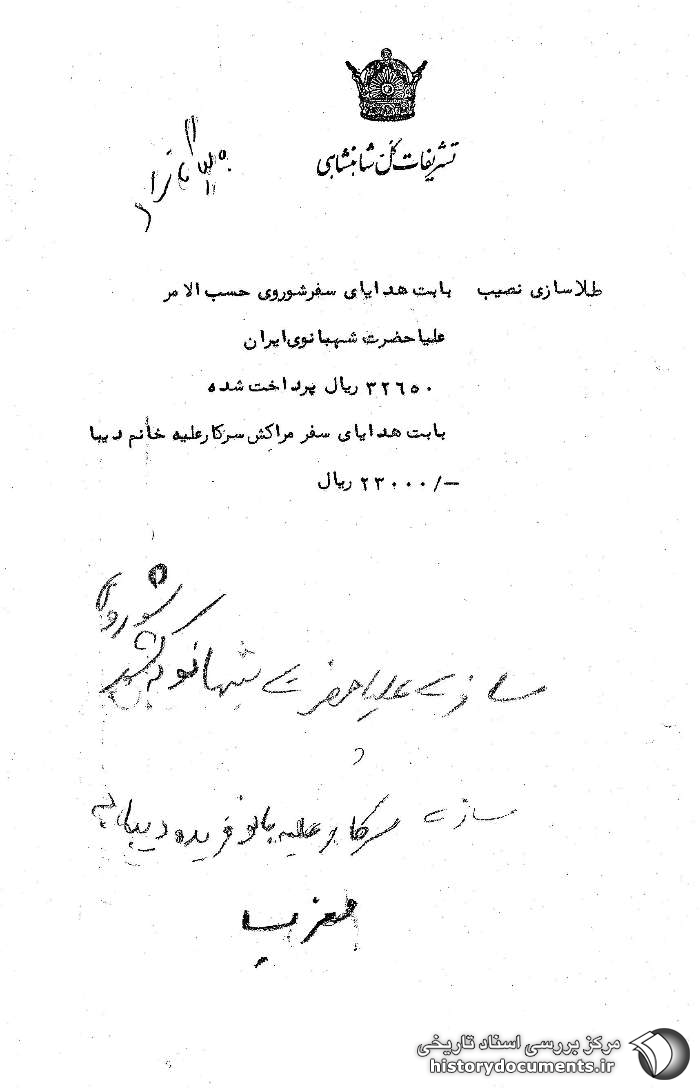 تشریفات کل شاهنشاهی
طلاسازی نصیب بابت هدایای سفرشوروی حسب الامر
علیاحضرت شهبانوی ایران
۳۲۶۵۰ ریال پرداخت شده
بابت هدایای سفر مراکش سرکارعلیه خانم دیبا
۲۳۰۰۰/- ریال
علیاحضرت شهبانو
شوروی
و
سرکار علیه بانو فریده دیبا به
مغرب
مرکز بررسی اسناد تاریخی
historydocuments.ir